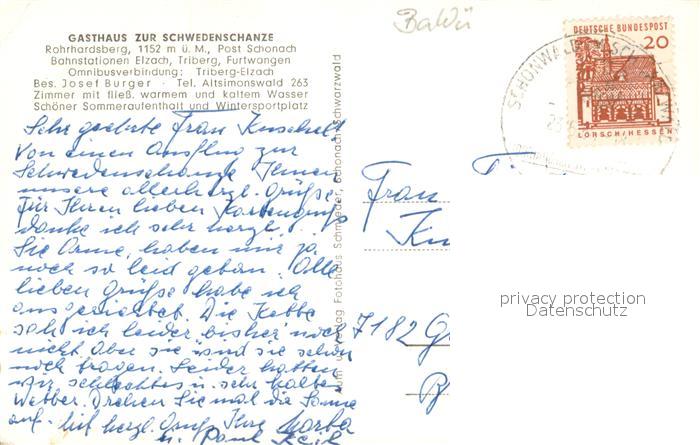 BaWü
GASTHAUS ZUR SCHWEDENSCHANZE
Rohrhardsberg, 1152 m ü. M., Post Schonach
Bahnstationen Elzach, Triberg, Furtwangen
Omnibusverbindung: Triberg-Elzach
Bes. Josef Burger - Tel. Altsimonswald 263
Zimmer mit fließ. warmem und kaltem Wasser
Schöner Sommeraufenthalt und Wintersportplatz
Sehr geehrte Frau
Von einem Ausflug zur
Schwedenschanze Ihnen
unsere allerherzl. Grüße
Für Ihren lieben Kartengruß
danke ich sehr herzl.
Sie Arme, haben mir ja
noch so leid getan. Alle
lieben Grüße habe ich
ausgerichtet. Die Kette
sah ich leider bisher noch
nicht. Aber sie wird sie schon
noch tragen. Leider hatten
wir schlechtes u. sehr kaltes
Wetter. Drehen Sie mal die Sonne
auf. Mit herzl. Gruß Ihre
u. Paul
Verlag Fotohaus Schmieder, Schonach/Schwarzwald
DEUTSCHE BUNDESPOST
20
LORSCH/HESSEN
SCHONWALD
Frau
7182
privacy protection
Datenschutz